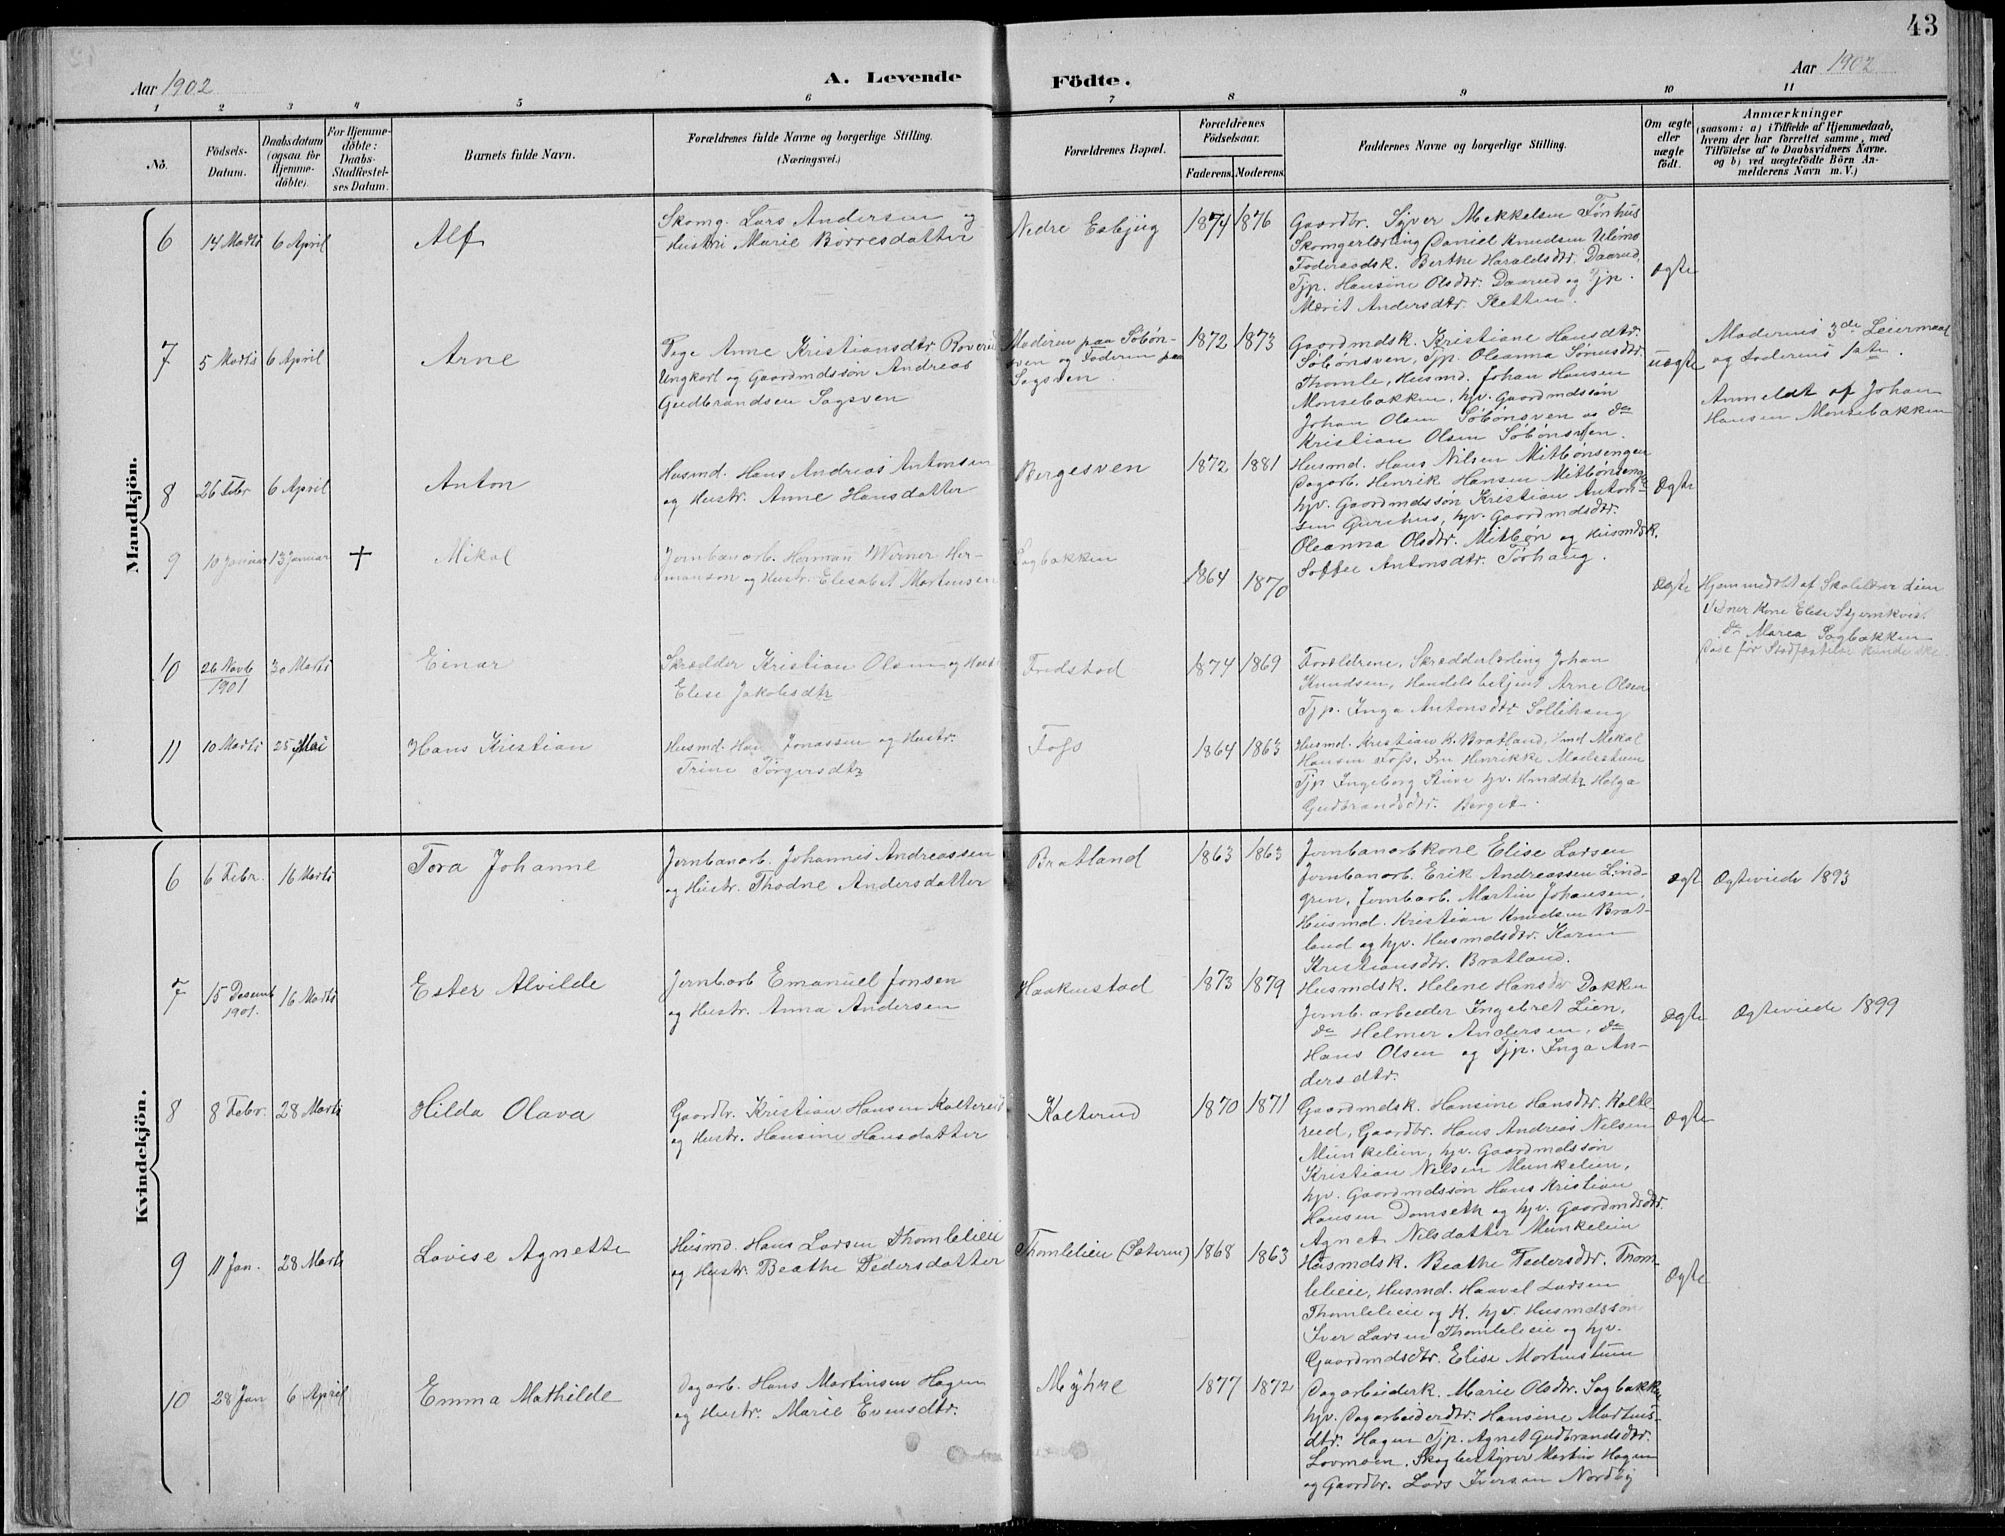 43
Aar 1902
A. Levende
Födte.
Aar 1902
1 2 3 4 5 6 7 8 9 10 11
No.
Födsels-
Datum.
Daabsdatum
(ogsaa for
Hjemme-
döbte).
For Hjemme-
döbte:
Daabs-
Stadfæstel-
ses Datum.
Barnets fulde Navn.
Forældrenes fulde Navne og borgerlige Stilling.
(Næringsvei.)
Forældrenes Bopæl.
Forældrenes
Födselsaar.
Faderens. Moderens.
Faddernes Navne og borgerlige Stilling.
Om ægte
eller
uægte
födt.
Anmærkninger
(saasom: a) i Tilfælde af Hjemmedaab,
hvem der har forrettet samme, med
Tilföielse af to Daabsvidners Navne,
og b) ved uægtefödte Börn An-
melderens Navn m. V.)
Mandkjön.
6
14 Marts
6 April
Alf
Skomg. Lars Andersen og
Hustri Marie Börresdatter
Nedre Esbjüg
1874
1876
Gaardbr. Syver Mekkelsen Fönhus
Skomgerlærling Daniel Knudsen
Foderaadsk. Berthe Haraldsdtr. Daarud,
Tjp. Hansine Olsdtr. Daarud og Tjp.
Marit Andersdtr. Sletten.
ægte
7
5 Marts
6 April
Arne
Pige Anne Kristiansdtr. Roverud
Ungkarl og Gaardmdssön Andreas
Gudbrandsen Sagsven
Moderen paa Söbön-
sven og Faderen paa
Sagsven.
1872
1873
Gaardmdsk. Kristiane Hansdtr.
Söbönsven, Tjp. Oleanna Simensdtr.
Thomle, Husmd. Johan Hansen
Monsebakken, hjv. Gaardmdssön
Johan Olsen Söbönsven og do
Kristian Olsen Söbönsven.
uægte
Moderens 3de Leiermaal
og Faderens 1ste.
Anmeldt af Johan
Hansen Monsebakken
8
26 Febr
6 April
Anton
Husmd. Hans Andreas Antonsen
og Hustr. Anne Hansdatter
Bergesven
1872
1881
Husmd. Hans Nilsen Mitbönsengen
Dagarb. Henrik Hansen Mitbönseng
hjv. Gaardmdssön Kristian Anton-
sen Gurihus, hjv. Gaardmdsdtr.
Oleanna Olsdtr. Mitbön og Husmdsk.
Soffie Antonsdtr. Törhaug.
ægte
9
10 Januar
13 Januar
+
Mikal
Jernbanarb. Herman Werner Her-
manson og Hustr. Elisabet Martinsen
Sagbakken
1864
1870
ægte
Hjemmedöbt af Skolelærer Lien
Vidner Kone Elise Stjernkvist
do Marea Sagbakken
Död för Stadfæstelse kunde ske.
10
26 Novb
1901
30 Marts
Einar
Skrædder Kristian Olsen og Hustr
Elise Jakobsdtr
Fredstad
1874
1869
Forældrene, Skrædderlærling Johan
Knudsen, Handelsbetjent Arne Olsen
Tjp. Inga Antonsdtr Sollihaug
11
10 Marts
25 Mai
Hans Kristian
Husmd. Hans Jonassen og Hustr.
Trine Törgersdtr
Foss
1864
1863
Husmd. Kristian K. Bratland, Hmd Mikal
Hansen Foss, Fru Henrikke Madestuen
Tjp Ingeborg Ruve hjv. Hmddtr Helga
Gudbrandsdtr. Berget.
Kvindekjön.
6
6 Febr.
16 Marts
Tora Johanne
Jernbanarb. Johannes Andreassen
og Hustr. Thodne Andersdatter
Bratland
1863
1863
Jernbanarbkone Elise Larsen
Jernbanarb. Erik Andreassen Lind-
gren, Jernbarb. Martin Johansen,
Husmd. Kristian Knudsen Brat-
land og hjv. Husmdsdtr. Karen
Kristiansdtr. Bratland.
ægt
Ægteviede 1893
7
15 Desemb
1901.
16 Marts
Ester Alvilde
Jernbarb Emanuel Jonsen
og Hustr. Anna Andersen
Haakenstad
1873
1879
Husmdsk. Helene Hansdtr Dokken
Jernb. arbeider Ingebret Lien,
do Helmer Andersen, do
Hans Olsen og Tjp. Inga An-
dersdtr.
ægte
Ægteviede 1899
8
8 Febr.
28 Marts
Hilda Olava
Gaardbr. Kristian Hansen Kolterud
og Hustr. Hansine Hansdatter
Kolterud
1870
1871
Gaardmdsk. Hansine Hansdtr. Kolte-
rud, Gaardbr. Hans Andreas Nilsen
Munkelien, hjv. Gaardmdssön
Kristian Nilsen Munkelien,
hjv. Gaardmdssön Hans Kristian
Hansen Domseth og hjv. Gaardmdsdtr.
Agnet Nilsdatter Munkelein
ægte
9
11 Jan.
28 Marts
Lovise Agnette
Husmd. Hans Larsen Thomleleie
og Hustr. Beathe Pedersdatter
Thomleleien (Sæteren)
1868
1863
Husmdsk. Beathe Pedersdtr. Thom-
leleie, Husmd. Haavel Larsen
Thomleleie og K. hjv. Husmdssön
Iver Larsen Thomleleie og hjv.
Gaardmdsdtr. Elise Mortenstuen
ægte
10
28 Jan
6 April
Emma Mathilde
Dagarb. Hans Martinsen Hagen
og Hustr. Marie Evensdtr.
Myhre
1877
1872
Dagarbeiderk. Marie Olsdtr. Sagbakken
hjv. Dagarbeiderdtr. Hansine Martins-
dtr. Hagen Tjp. Agnet Gudbrandsdtr.
Lovmoen. Skogbestyrer Martin Hagen
og Gaardbr. Lars Iversen Nordby